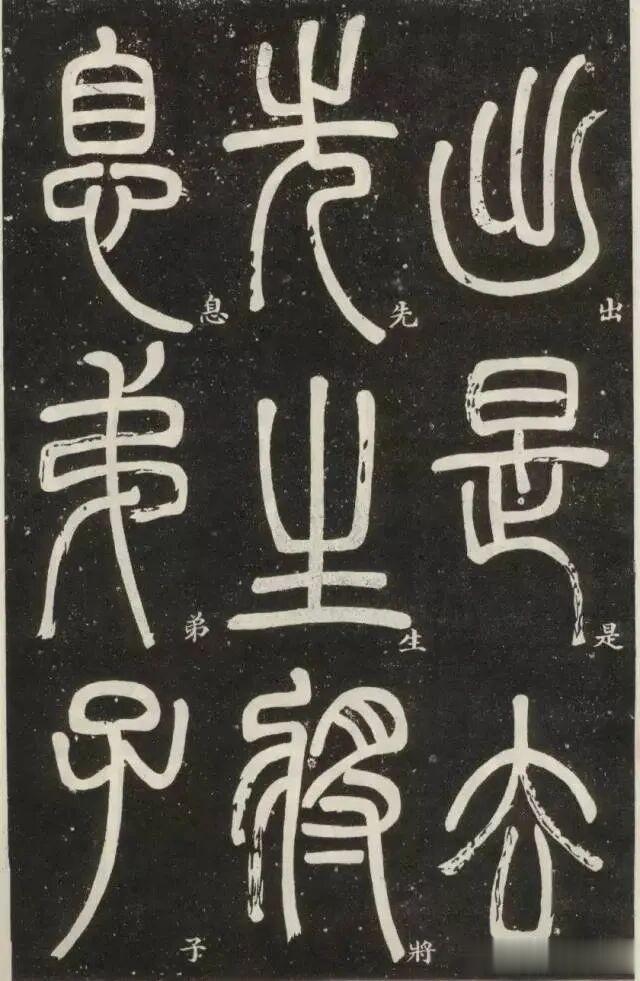 出是去
先生將
息弟子